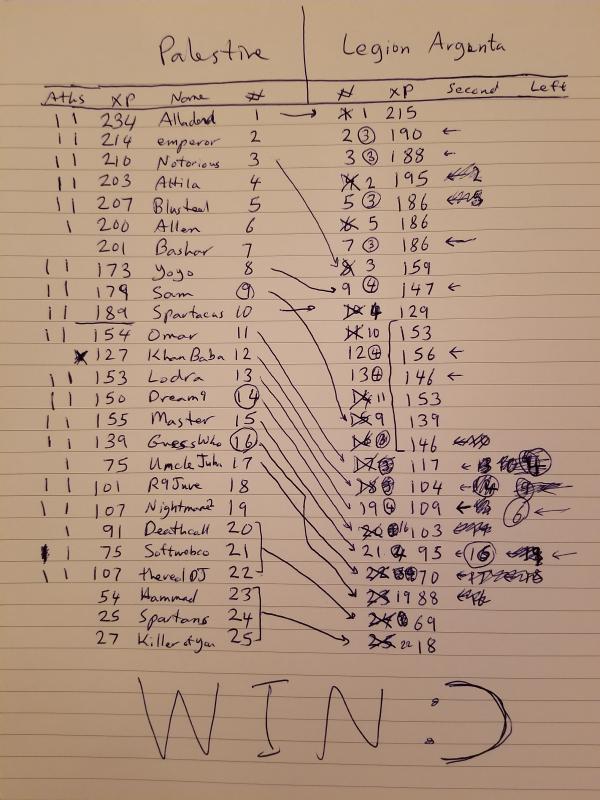 Palestine Legion Argenta
Aths XP Name # # XP Second Left
11 234 Alladord 1 → 1 215
11 214 emperor 2 2 (3) 190 ←
11 210 Notorious 3 3 (3) 188 ←
11 203 Attila 4 2 195
11 207 Blusteal 5 5 (3) 186
1 200 Allen 6 5 186
201 Bashar 7 7 (3) 186 ←
11 173 Yoyo 8 3 159
11 179 Sam (9) 9 (4) 147 ←
11 189 Spartacus 10 → 4 129
11 154 Omar 11 10 153
127 Khan Baba 12 12 (4) 156 ←
11 153 Lodra 13 13 (4) 146 ←
11 150 Dream9 (14) 11 153
11 155 Master 15 9 139
11 139 GuessWho (16) 146
1 75 Uncle John 17 117
11 101 R9June 18 104
11 107 Nightmare 19 19 (4) 109 (6) ←
1 91 Deathcall 20 103
1 75 Softwobco 21 21 95 (16) ←
11 107 therealDJ 22 70
54 Hammad 23 19 88
25 Spartans 24 69
27 Killer of you 25 22 18
WIN :)